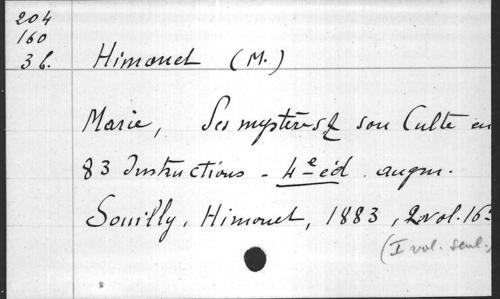 204
160
36.
Himonet (M.)
Marie, Ses mystères & son Culte en
83 Instructions - 4e éd. augm.
Souilly, Himonet, 1883, 2 vol. 16°
(I vol. seul.)